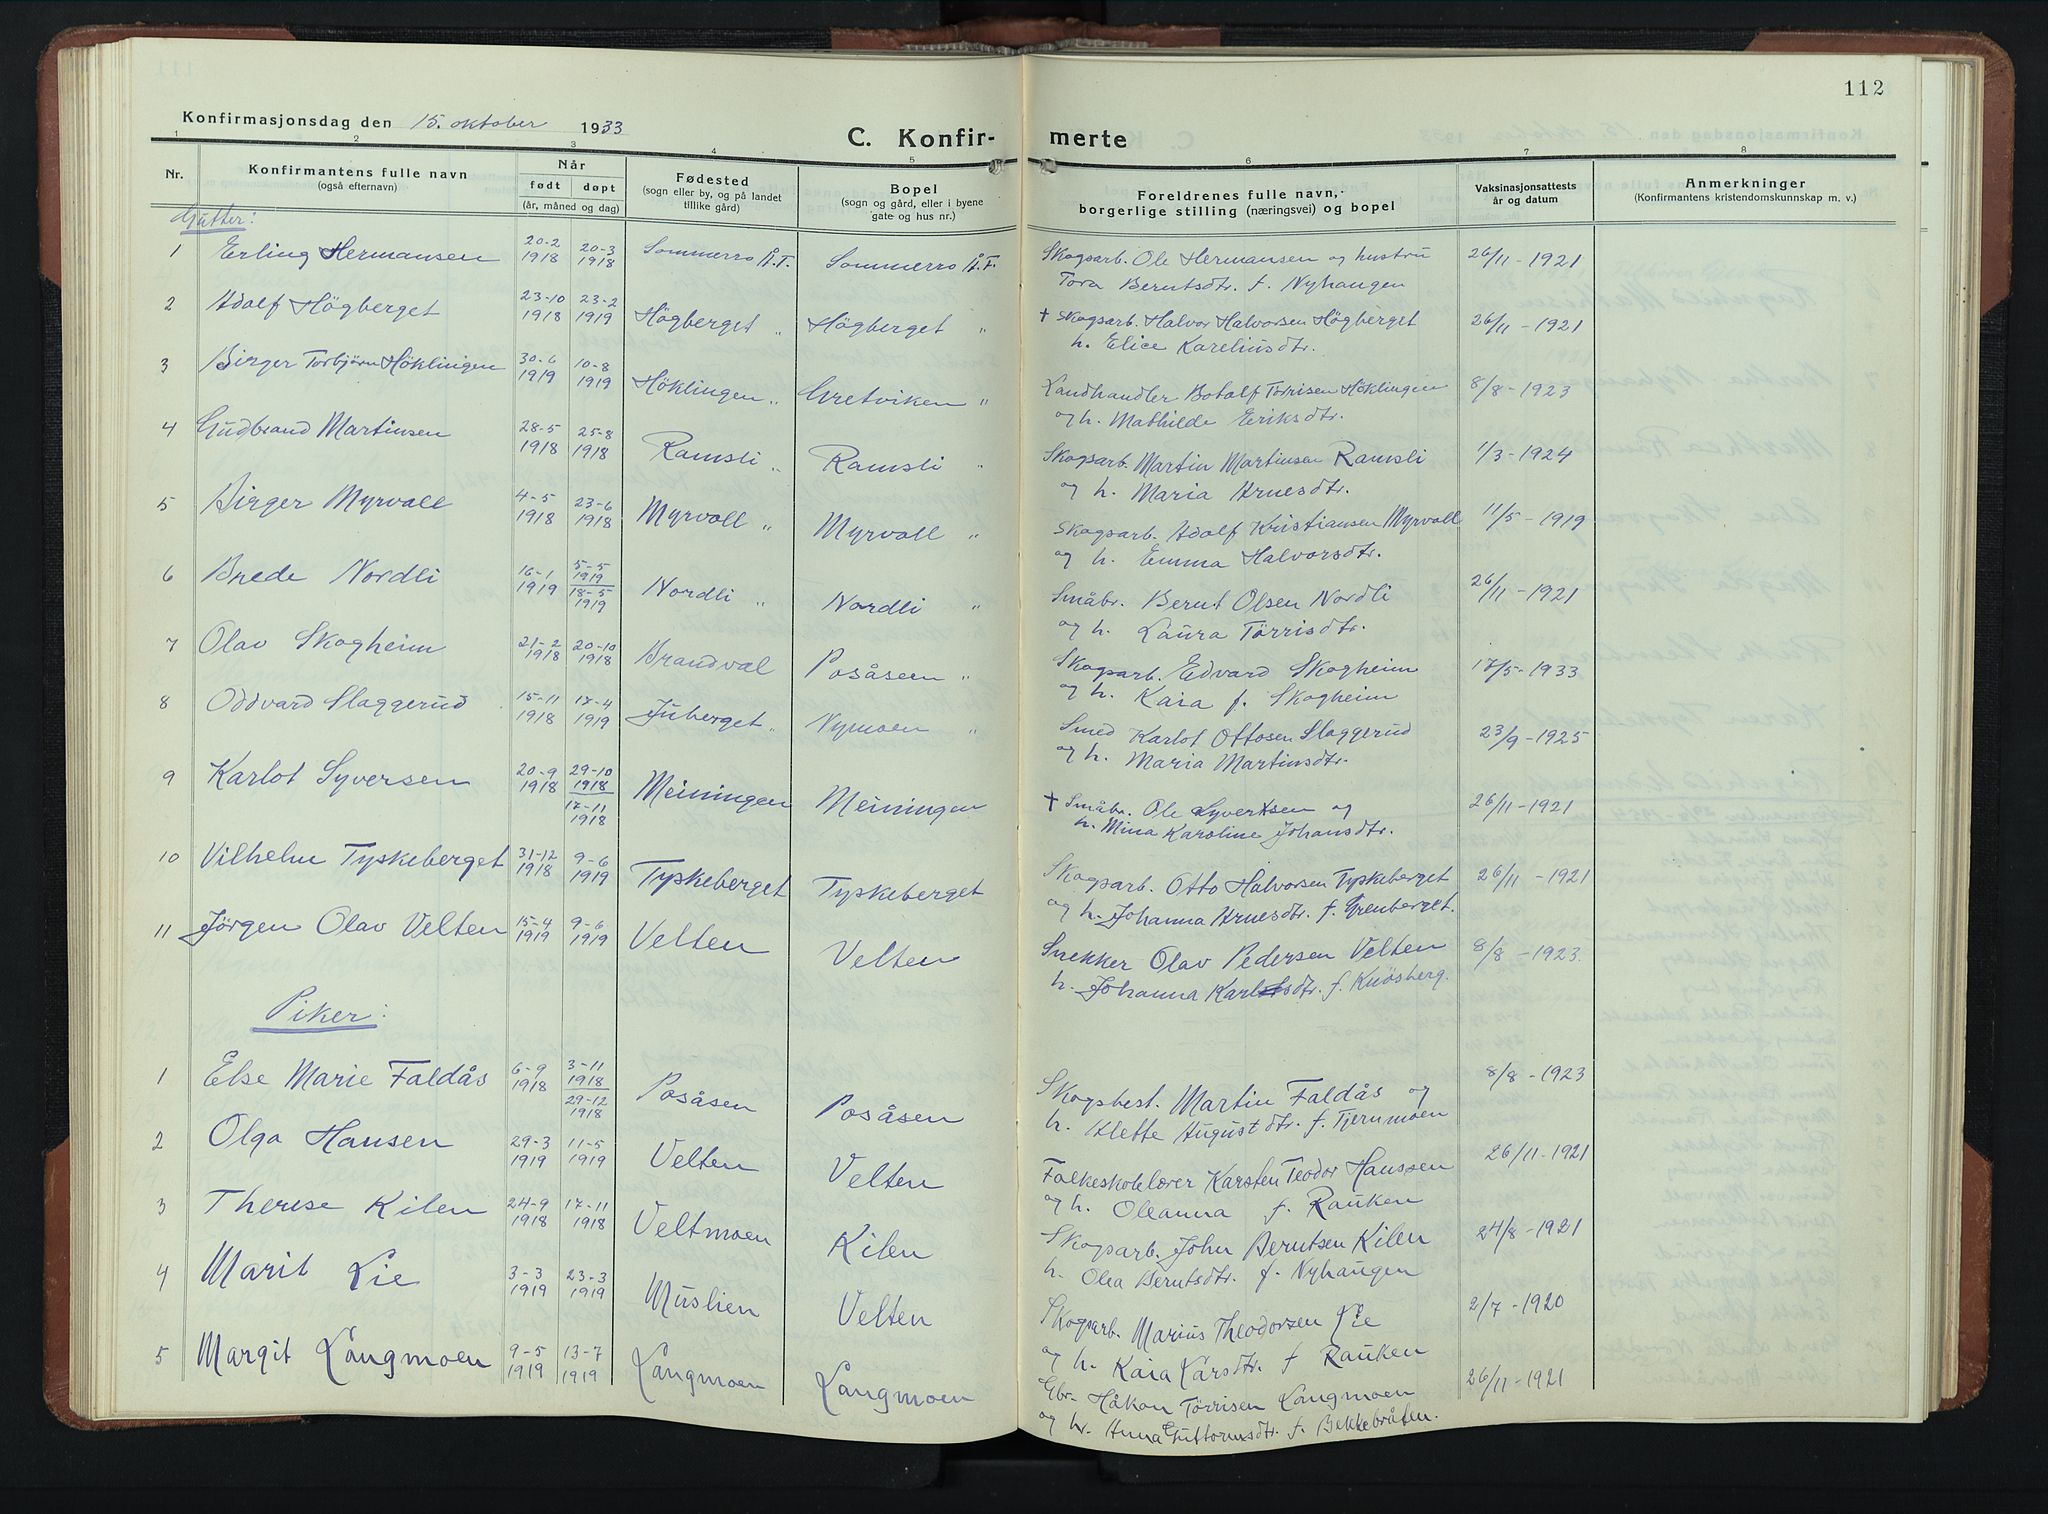 112
Konfirmasjonsdag den 15. oktober 1933
C. Konfir- merte
1 2 3 4 5 6 7 8
Nr. Konfirmantens fulle navn (også efternavn) Når født døpt (år, måned og dag) Fødested (sogn eller by, og på landet tillike gård) Bopel (sogn og gård, eller i byene gate og hus nr.) Foreldrenes fulle navn, borgerlige stilling (næringsvei) og bopel Vaksinasjonsattests år og datum Anmerkninger (Konfirmantens kristendomskunnskap m. v.)
Gutter:
1 Erling Hermansen 20-2 1918 20-3 1918 Sommerro Å.F. Sommerro Å.F. Skogsarb. Ole Hermansen og hustru 26/11-1921
Tora Berntsdtr. f. Nyhaugen
2 Adolf Högberget 23-10 1918 23-2 1919 Högberget " Högberget " † Skogsarb. Halvor Halvorsen Högberget 26/11-1921
h. Elice Kareliusdtr.
3 Birger Torbjörn Höklingen 30-6 1919 10-8 1919 Höklingen " Gretviken " Landhandler Botolf Törrisen Höklingen 8/8-1923
og h. Mathilde Eriksdtr.
4 Gudbrand Martinsen 28-5 1918 25-8 1918 Ramsli " Ramsli " Skogsarb. Martin Martinsen Ramsli 1/3-1924
og h. Maria Arnesdtr.
5 Birger Myrvoll 4-5 1918 23-6 1918 Myrvoll " Myrvoll " Skogsarb. Adolf Kristiansen Myrvoll 11/5-1919
og h. Emma Halvorsdtr.
6 Brede Nordli 16-1 1919 5-5 1919 18-5 1919 Nordli " Nordli " Småbr. Bernt Olsen Nordli 26/11-1921
og h. Laura Törrisdtr.
7 Olav Skogheim 21-2 1918 20-10 1918 Brandval Posåsen " Skogsarb. Edvard Skogheim 17/5-1933
og h. Kaia f. Skogheim
8 Oddvard Slaggerud 15-11 1918 17-4 1919 Juberget " Nymoen " Smed Karlot Ottosen Slaggerud 23/9-1925
og h. Maria Martinsdtr.
9 Karlot Syversen 20-9 1918 29-10 1918 17-11 1918 Meiningen Meiningen † Småbr. Ole Syvertsen og 26/11-1921
h. Mina Karoline Johansdtr.
10 Vilhelm Tyskeberget 31-12 1918 9-6 1919 Tyskeberget Tyskeberget Skogsarb. Otto Halvorsen Tyskeberget 26/11-1921
og h. Johanna Arnesdtr. f. Grenberget.
11 Jörgen Olav Velten 15-4 1919 9-6 1919 Velten Velten Snekker Olav Pedersen Velten 8/8-1923.
h. Johanna Karlsdtr. f. Knösberg.
Piker:
1 Else Marie Faldås 6-9 1918 3-11 1918 29-12 1918 Posåsen Posåsen Skogsbest. Martin Faldås og 8/8-1923
h. Klette Augustdtr. f. Tjernmoen
2 Olga Hansen 29-3 1919 11-5 1919 Velten Velten Folkeskolelærer Karsten Teodor Hanssen 26/11-1921
og h. Oleanna f. Rauken
3 Therese Kilen 24-9 1918 17-11 1918 Veltmoen Kilen Skogsarb. John Berntsen Kilen 24/8-1921
h. Olea Berntsdtr. f. Nyhaugen
4 Marit Lie 3-3 1919 23-3 1919 Muslien Velten Skogsarb. Marius Theodorsen Lie 2/7-1920
og h. Kaia Larsdtr. f Rauken
5 Margit Langmoen 9-5 1919 13-7 1919 Langmoen Langmoen Gbr. Håkon Törrisen Langmoen 26/11-1921
og h. Anna Guttormsdtr. f. Bekkebråten.